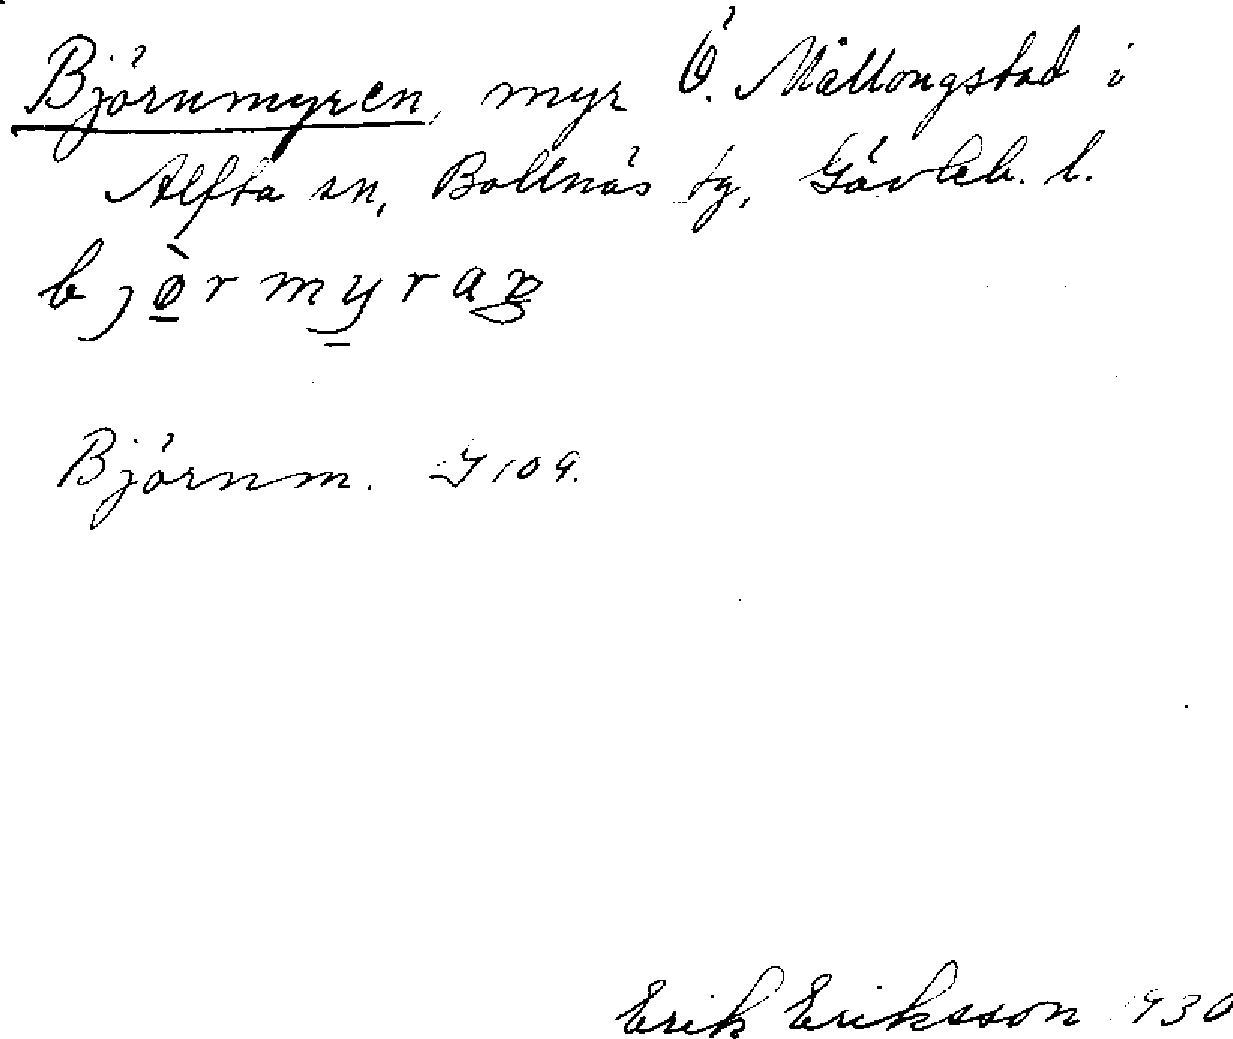 Björnmyren, myr Ö. Mållongstad i
Alfta sn, Bollnäs tg, Gävleb. l.
björmyraṇ
Björnm. J 109.
Erik Eriksson 1930